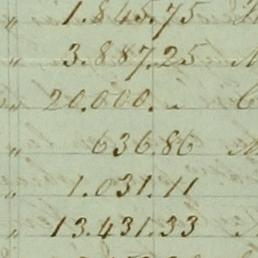 " 1.845.75
" 3.887.25
20.000. "
" 636.86
" 1.031.11
" 13.431.33